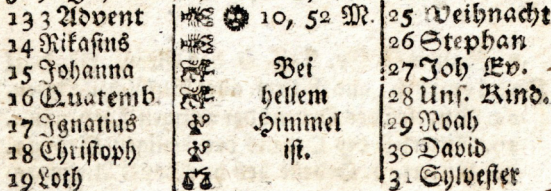 13 3 Advent 10, 52 M. 25 Weihnacht
14 Nikasius 26 Stephan
15 Johanna Bei 27 Joh Ev.
16 Quatemb. hellem 28 Uns. Kind.
17 Ignatius Himmel 29 Noah
18 Christoph ist. 30 David
19 Loth 31 Sylvester